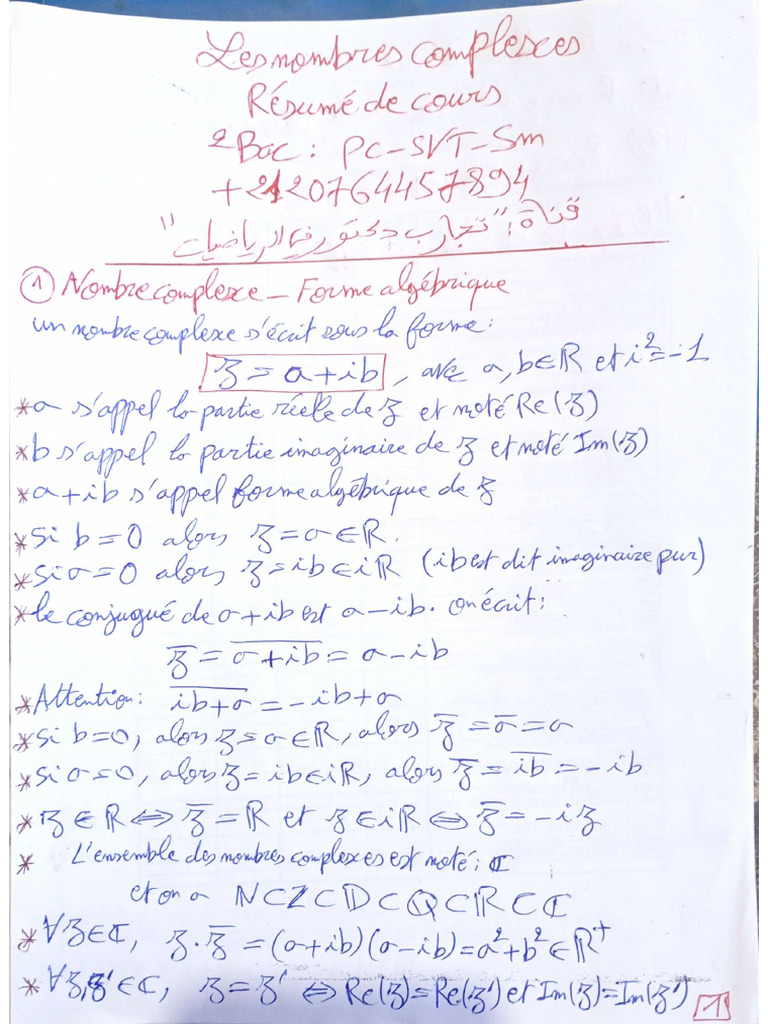 Les nombres complexes
Résumé de cours
2Bac : PC-SVT-Sm
+2120764457894
قناة: "تجارب دكتور في الرياضيات"
① Nombre complexe - Forme algébrique
un nombre complexe s'écrit sous la forme :
z = a + ib , avec a, b ∈ ℝ et i² = -1
* a s'appel la partie réelle de z et noté Re(z)
* b s'appel la partie imaginaire de z et noté Im(z)
* a + ib s'appel forme algébrique de z
* Si b = 0 alors z = a ∈ ℝ.
* Si a = 0 alors z = ib ∈ iℝ (ib est dit imaginaire pur)
* le conjugué de a + ib est a - ib. on écrit :
z̅ = \overline{a + ib} = a - ib
* Attention : \overline{ib + a} = -ib + a
* Si b = 0, alors z = a ∈ ℝ, alors z̅ = a̅ = a
* Si a = 0, alors z = ib ∈ iℝ, alors z̅ = \overline{ib} = -ib
* z ∈ ℝ ⇔ z̅ = ℝ et z ∈ iℝ ⇔ z̅ = -iz
* L'ensemble des nombres complexes est noté : ℂ
et on a ℕ ⊂ ℤ ⊂ 𝔻 ⊂ ℚ ⊂ ℝ ⊂ ℂ
* ∀z ∈ ℂ, z · z̅ = (a + ib)(a - ib) = a² + b² ∈ ℝ⁺
* ∀z, z' ∈ ℂ, z = z' ⇔ Re(z) = Re(z') et Im(z) = Im(z')
1